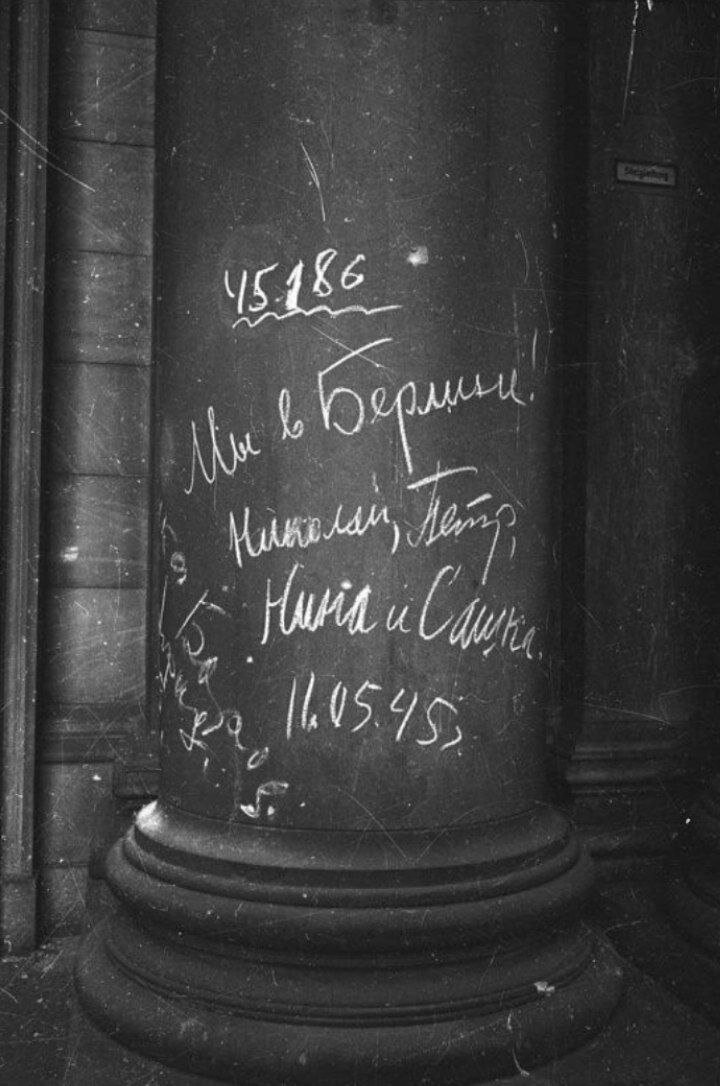 45186
Мы в Берлине!
Николай, Петр,
Нина и Сашка.
11.05.45г.